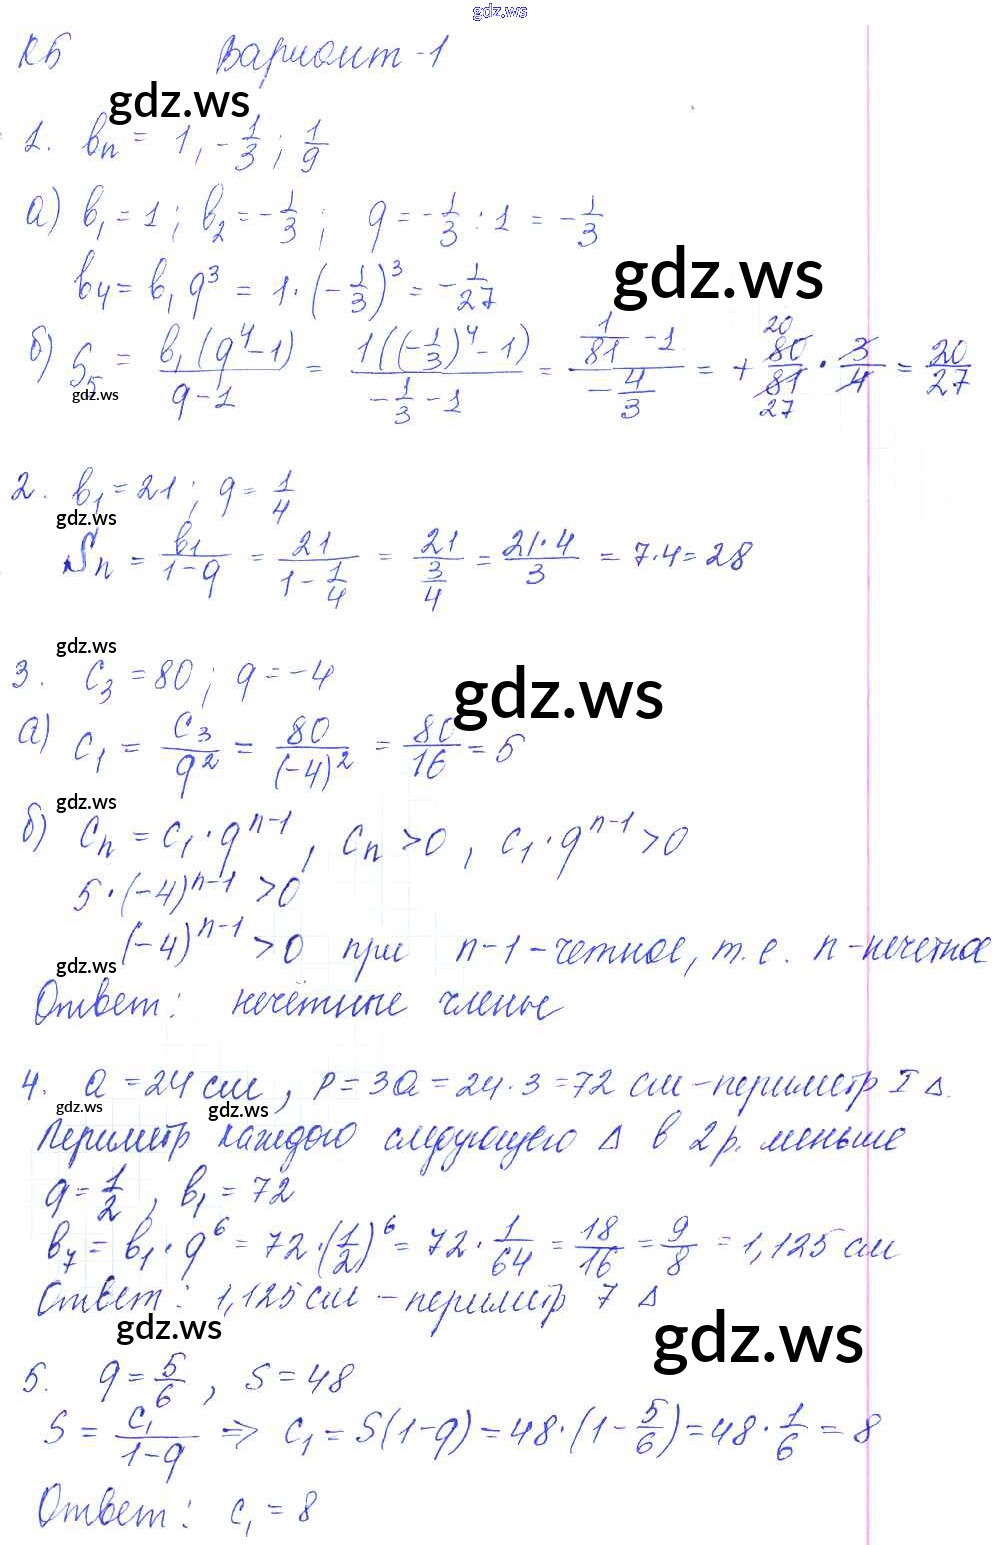 gdz.ws
КБ Вариант-1
gdz.ws
1. bₙ = 1, -1/3; 1/9
а) b₁ = 1; b₂ = -1/3; q = -1/3 : 1 = -1/3
gdz.ws
b₄ = b₁q³ = 1·(-1/3)³ = -1/27
б) S₅ = b₁(q⁴-1)/(q-1) = 1((-1/3)⁴-1)/(-1/3-1) = (1/81-1)/(-4/3) = +80/81 · 3/4 = 20/27
20
27
gdz.ws
2. b₁ = 21; q = 1/4
gdz.ws
Sₙ = b₁/(1-q) = 21/(1-1/4) = 21/(3/4) = 21·4/3 = 7·4 = 28
gdz.ws
3. c₃ = 80; q = -4
gdz.ws
а) c₁ = c₃/q² = 80/(-4)² = 80/16 = 5
gdz.ws
б) cₙ = c₁·qⁿ⁻¹, cₙ > 0, c₁·qⁿ⁻¹ > 0
5·(-4)ⁿ⁻¹ > 0
(-4)ⁿ⁻¹ > 0 при n-1-четное, т.е. n-нечетное
gdz.ws
Ответ: нечётные члены
4. a = 24 см, P = 3a = 24·3 = 72 см -периметр I Δ.
gdz.ws
Периметр каждого следующего Δ в 2 р. меньше
q = 1/2, b₁ = 72
b₇ = b₁·q⁶ = 72·(1/2)⁶ = 72·1/64 = 18/16 = 9/8 = 1,125 см
Ответ: 1,125 см -периметр 7 Δ
gdz.ws
gdz.ws
5. q = 5/6, S = 48
S = c₁/(1-q) => c₁ = S(1-q) = 48·(1-5/6) = 48·1/6 = 8
Ответ: c₁ = 8